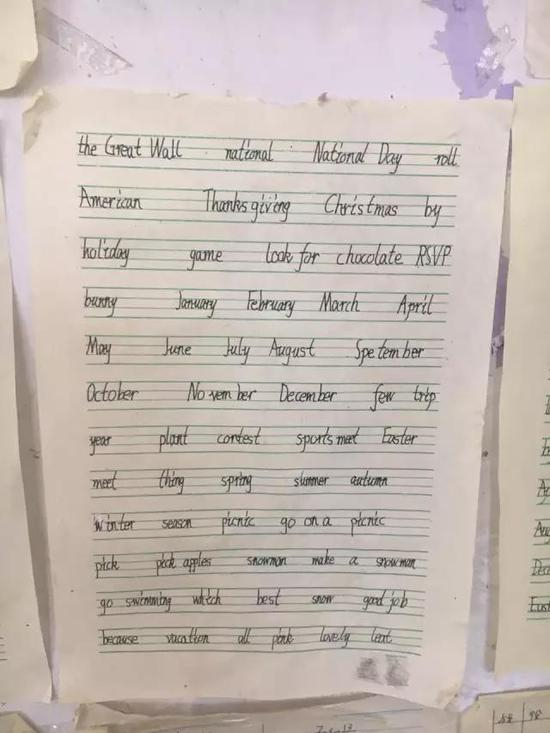 the Great Wall national National Day roll
American Thanksgiving Christmas by
holiday game look for chocolate RSVP
bunny January February March April
May June July August Spetember
October November December few trip
year plant contest sports meet Easter
meet thing spring summer autumn
winter season picnic go on a picnic
pick pick apples snowman make a snowman
go swimming which best snow good job
because vacation all pink lovely leaf